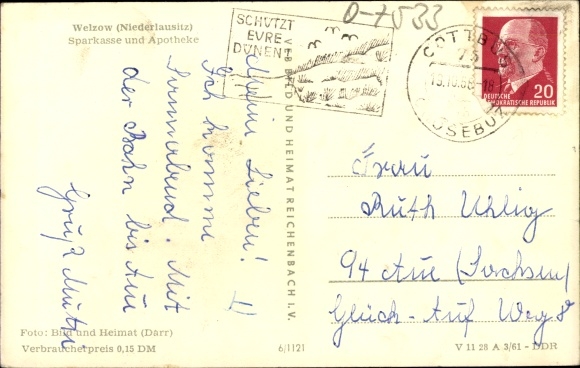 Welzow (Niederlausitz)
Sparkasse und Apotheke
SCHÜTZT
EURE
DÜNEN!
0-7533
COTTBUS
15.10.68-18
CHOSEBUZ
20
DEUTSCHE
DEMOKRATISCHE REPUBLIK
Meine Lieben!
Ich komme
Sonnabend. Mit
der Bahn bis Aue
Gruß Mutti.
VEB BILD UND HEIMAT REICHENBACH I. V.
Frau
Ruth Uhlig
94 Aue (Sachsen)
Glück-Auf Weg 8
Foto: Bild und Heimat (Darr)
Verbraucherpreis 0,15 DM
6/1121
V 11 28 A 3/61 - DDR